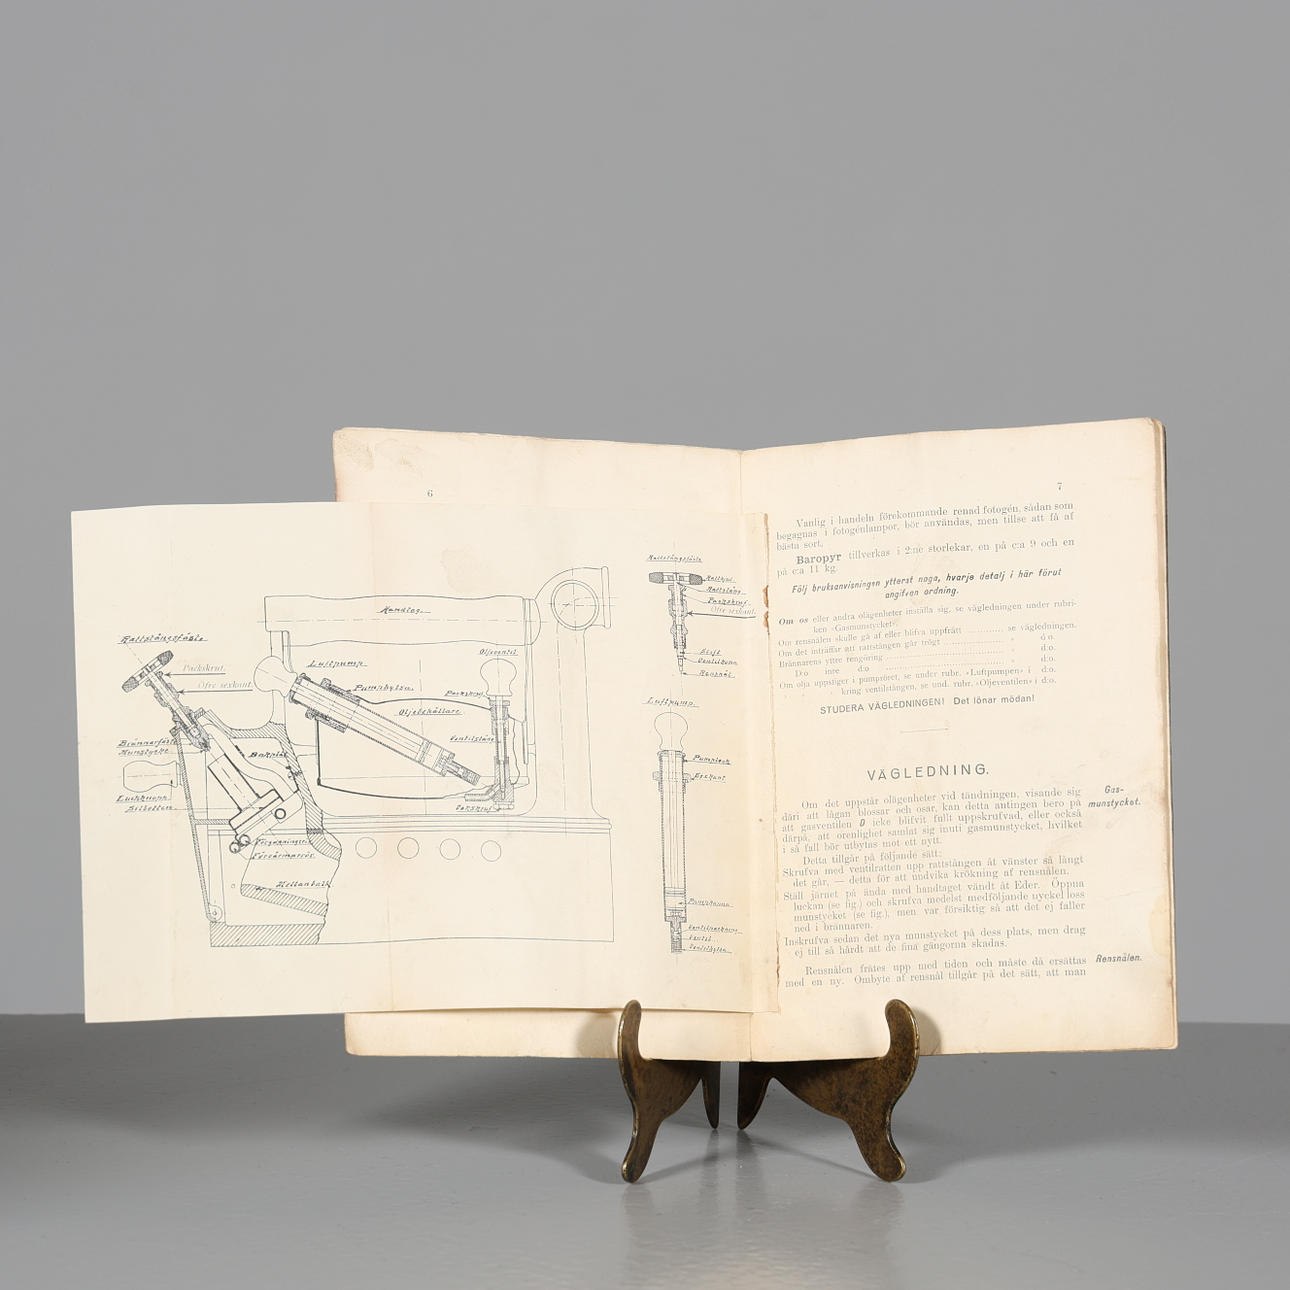 6
Rattstångsfäste
Packskrut.
Öfre sexkant.
Brännarfäste
Munstycke
Luckknopp
Silbotten
Handtag.
Luftpump
Pumphylsa
Oljebehållare
Bakplåt
Oljeventil
Packskruf
Ventilstång
Förvärmareör
Mellanbalk
Rattstångsfäste
Ratthjul
Rattstång
Packskruf.
Öfre sexkant.
Stift
Rensnål
Luftpump
Pumplock
Sexkant
Ventilhylsa
7
Vanlig i handeln förekommande renad fotogén, sådan som
begagnas i fotogénlampor, bör användas, men tillse att få af
bästa sort.
Baropyr tillverkas i 2:ne storlekar, en på c:a 9 och en
på c:a 11 kg.
Följ bruksanvisningen ytterst noga, hvarje detalj i här förut
angifven ordning.
Om os eller andra olägenheter inställa sig, se vägledningen under rubri-
ken »Gasmunstycket».
Om rensnålen skulle gå af eller blifva uppfrätt ........... se vägledningen.
Om det inträffar att rattstången går trögt ................ » d:o.
Brännarens yttre rengöring ................................ » d:o.
D:o inre d:o ................................ » d:o.
Om olja uppstiger i pumpröret, se under rubr. »Luftpumpen» i d:o.
» » kring ventilstången, se und. rubr. »Oljeventilen» i d:o.
STUDERA VÄGLEDNINGEN! Det lönar mödan!
VÄGLEDNING.
Om det uppstår olägenheter vid tändningen, visande sig
däri att lågan blossar och osar, kan detta antingen bero på
att gasventilen D icke blifvit fullt uppskrufvad, eller också
därpå, att orenlighet samlat sig inuti gasmunstycket, hvilket
i så fall bör utbytas mot ett nytt.
Gas-
munstycket.
Detta tillgår på följande sätt:
Skrufva med ventilratten upp rattstången åt vänster så långt
det går, — detta för att undvika krökning af rensnålen.
Ställ järnet på ända med handtaget vändt åt Eder. Öppna
luckan (se fig.) och skrufva medelst medföljande nyckel loss
munstycket (se fig.), men var försiktig så att det ej faller
ned i brännaren.
Inskrufva sedan det nya munstycket på dess plats, men drag
ej till så hårdt att de fina gängorna skadas.
Rensnålen frätes upp med tiden och måste då ersättas
med en ny. Ombyte af rensnål tillgår på det sätt, att man
Rensnålen.